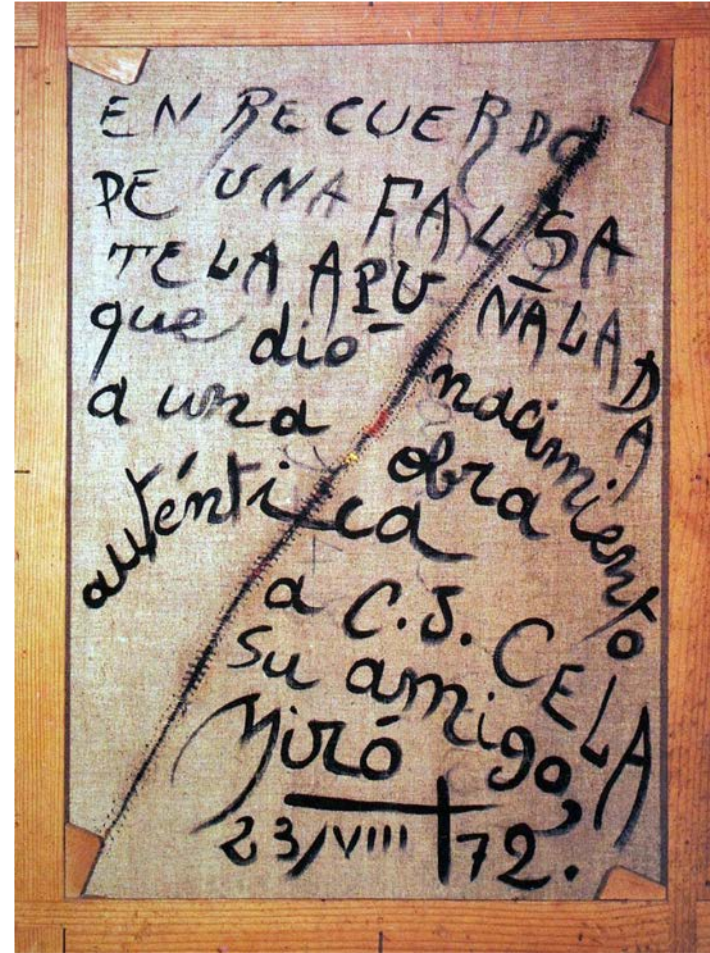 EN RECUERDO
DE UNA FALSA
TELA APUÑALADA
que dió nacimiento
a una obra
auténtica
a C.J. CELA
su amigo,
Miró
23/VIII 72.